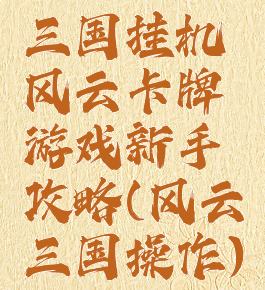 三国挂机
风云卡牌
游戏新手
攻略(风云
三国操作)